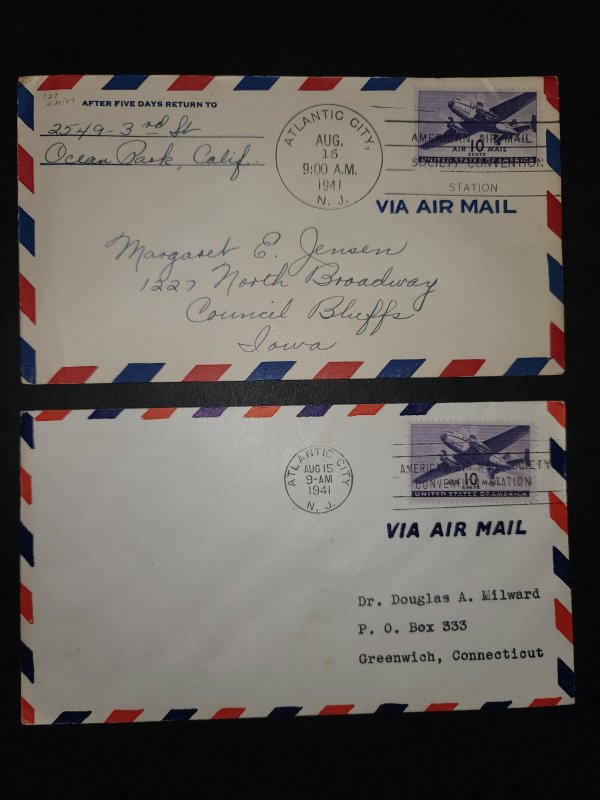 C27
AFTER FIVE DAYS RETURN TO
2549-3rd St
Ocean Park, Calif.
ATLANTIC CITY,
AUG.
15
9:00 A.M.
1941
N. J.
AMERICAN AIR MAIL
SOCIETY CONVENTION
STATION
AIR 10 MAIL
CENTS
UNITED STATES OF AMERICA
VIA AIR MAIL
Margaret E. Jensen
1227 North Broadway
Council Bluffs
Iowa
ATLANTIC CITY
AUG 15
9-AM
1941
N. J.
AMERICAN AIR MAIL SOCIETY
CONVENTION STATION
AIR 10 MAIL
CENTS
UNITED STATES OF AMERICA
VIA AIR MAIL
Dr. Douglas A. Milward
P. O. Box 333
Greenwich, Connecticut